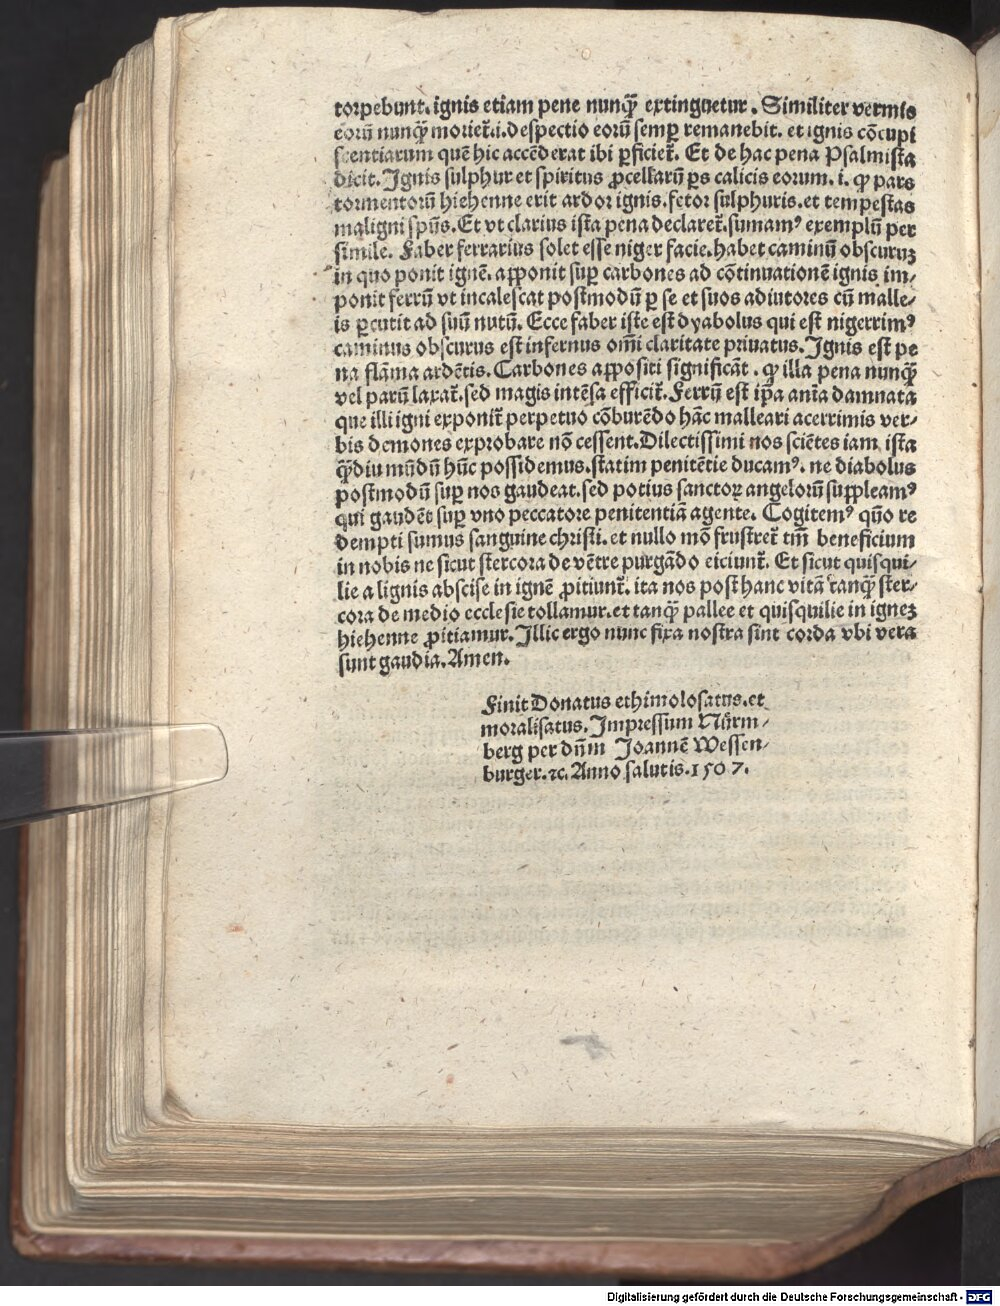 torpebunt. ignis etiam pene nunqꝫ̃ extinguetur. Similiter vermis
eorũ nunqꝫ̃ moriet̃.i. despectio eorũ semꝑ remanebit. et ignis cõcupi
scentiarum quẽ hic accẽderat ibi ꝑficiet̃. Et de hac pena Psalmista
dicit. Ignis sulphur et spiritus ꝓcellarũ ꝑs calicis eorum. i. ꝙ pars
tormentorũ hiehenne erit ardor ignis. fetor sulphuris. et tempestas
maligni spũs. Et vt clarius ista pena declaret̃. sumamꝰ exemplũ per
simile. Faber ferrarius solet esse niger facie. habet caminũ obscuruꝫ
in quo ponit ignẽ. aꝓponit suꝑ carbones ad cõtinuationẽ ignis im⸗
ponit ferrũ vt incalescat postmodũ ꝑ se et suos adiutores cũ malle⸗
is ꝑcutit ad suũ nutũ. Ecce faber iste est dyabolus qui est nigerrimꝰ
caminus obscurus est infernus om̃i claritate priuatus. Ignis est pe
na flãma ardẽtis. Carbones aꝓpositi significãt. ꝙ illa pena nunqꝫ̃
vel parũ laxat̃. sed magis intẽsa efficit̃. Ferrũ est ip̃a anĩa damnata
que illi igni exponit̃ perpetuo cõburẽdo hãc malleari acerrimis ver⸗
bis demones exprobare nõ cessent. Dilectissimi nos sciẽtes iam ista
qꝫ̃diu mũdũ hũc possidemus. statim penitẽtie ducamꝰ. ne diabolus
postmodũ suꝑ nos gaudeat. sed potius sanctoꝝ angelorũ suꝓpleamꝰ
qui gaudẽt suꝑ vno peccatore penitentiã agente. Cogitemꝰ qũo re
dempti sumus sanguine christi. et nullo mõ frustret̃ tm̃ beneficium
in nobis ne sicut stercora de vẽtre purgãdo eiciunt̃. Et sicut quisqui⸗
lie a lignis abscise in ignẽ ꝓitiunt̃. ita nos post hanc vitã tanqꝫ̃ ster⸗
cora de medio ecclesie tollamur. et tanqꝫ̃ pallee et quisquilie in igneꝫ
hiehenne ꝓitiamur. Illic ergo nunc fixa nostra sint corda vbi vera
sunt gaudia. Amen.
Finit Donatus ethimolosatus. et
moralisatus. Impressum Nũrm⸗
berg per dñm Joannẽ Wessen⸗
burger. ꝛc. Anno salutis. 1507.
Digitalisierung gefördert durch die Deutsche Forschungsgemeinschaft - DFG